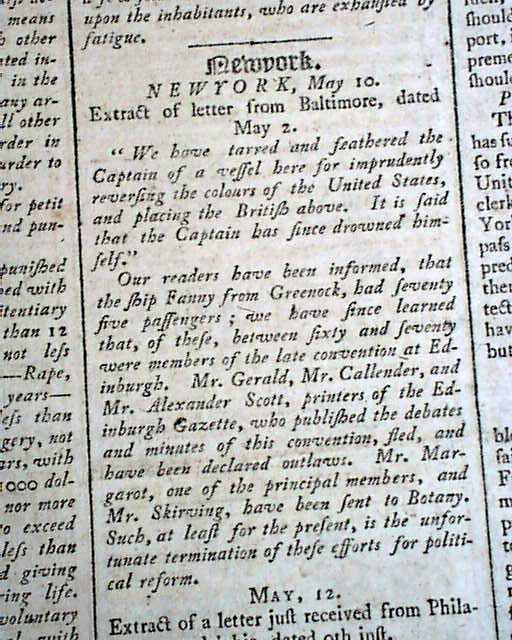 means
other
in the
any ar-
other
for petit
pun-
puniſhed
with
than 12
not leſs
—Rape,
years—
leſs than
not
with
1000 dol-
nor more
to exceed
leſs than
giving
life.
voluntary
with
upon the inhabitants, who are exhauſted by
fatigue.
Newyork.
NEWYORK, May 10.
Extract of letter from Baltimore, dated
May 2.
"We have tarred and feathered the
Captain of a veſſel here for imprudently
reverſing the colours of the United States,
and placing the Britiſh above. It is ſaid
that the Captain has ſince drowned him-
ſelf."
Our readers have been informed, that
the ſhip Fanny from Greenock, had ſeventy
five paſſengers; we have ſince learned
that, of theſe, between ſixty and ſeventy
were members of the late convention at Ed-
inburgh. Mr. Gerald, Mr. Callender, and
Mr. Alexander Scott, printers of the Ed-
inburgh Gazette, who publiſhed the debates
and minutes of this convention, fled, and
have been declared outlaws. Mr. Mar-
garot, one of the principal members, and
Mr. Skirving, have been ſent to Botany.
Such, at leaſt for the preſent, is the unfor-
tunate termination of theſe efforts for politi-
cal reform.
MAY, 12.
Extract of a letter juſt received from Phila-
dated 9th inſt.
ſhoul
port, i
ſhoul
P
Th
has ſu
ſo fre
Unit
clerk
York
paſs
pred
ther
tect
hav
but